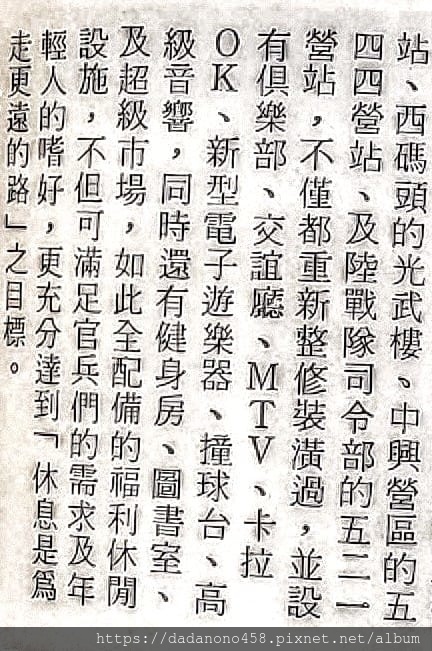 站、西碼頭的光武樓、中興營區的五
四四營站、及陸戰隊司令部的五二一
營站，不僅都重新整修裝潢過，並設
有俱樂部、交誼廳、MTV、卡拉
OK、新型電子遊樂器、撞球台、高
級音響，同時還有健身房、圖書室、
及超級市場，如此全配備的福利休閒
設施，不但可滿足官兵們的需求及年
輕人的嗜好，更充分達到「休息是爲
走更遠的路」之目標。
https://dadanono458.pixnet.net/album